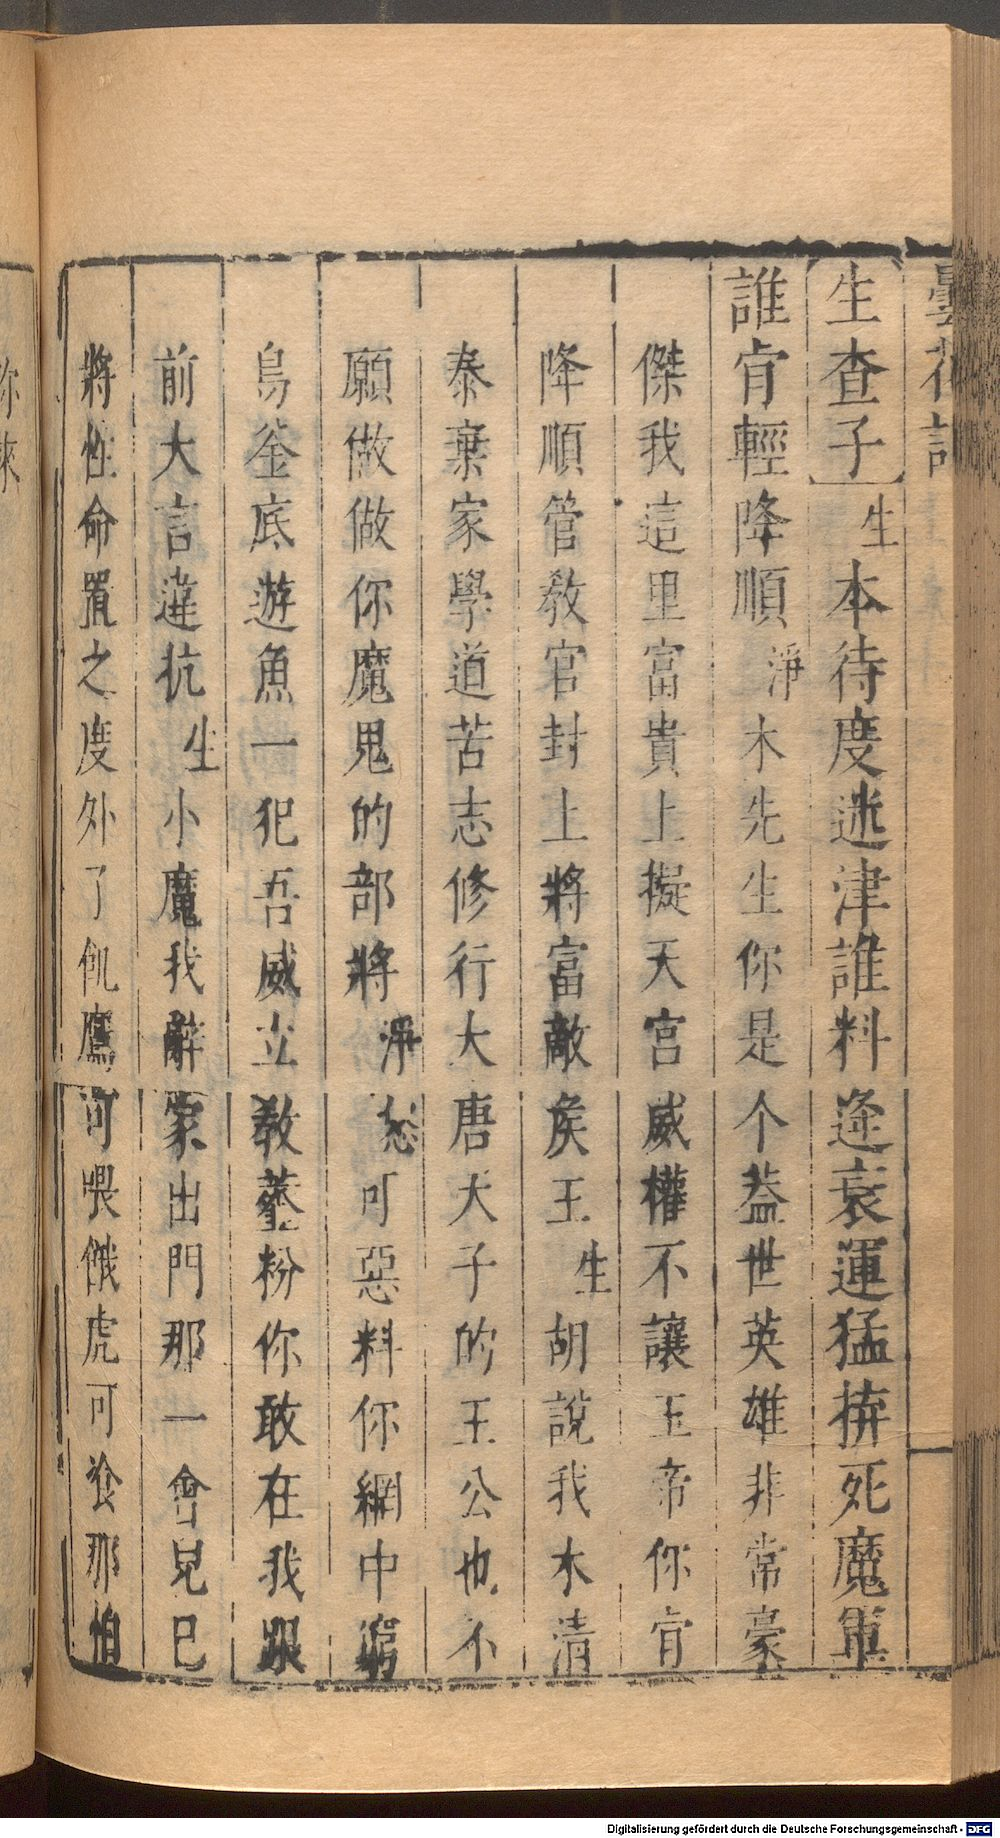 曇花記
生查子生本待度迷津誰料逢衰運猛拚死魔軍
誰肯輕降順淨木先生你是个葢世英雄非常豪
傑我這里富貴上擬天宮威權不讓玉帝你肯
降順管教官封上將富敵侯王生胡說我木清
泰棄家學道苦志修行大唐天子的王公也不
願做做你魔鬼的部將淨怒可惡料你網中窮
鳥釜底遊魚一犯吾威立教虀粉你敢在我跟
前大言違抗生小魔我辭家出門那一會兒已
將性命置之度外了飢鷹可喂餓虎可飡那怕
你來
Digitalisierung gefördert durch die Deutsche Forschungsgemeinschaft - DFG